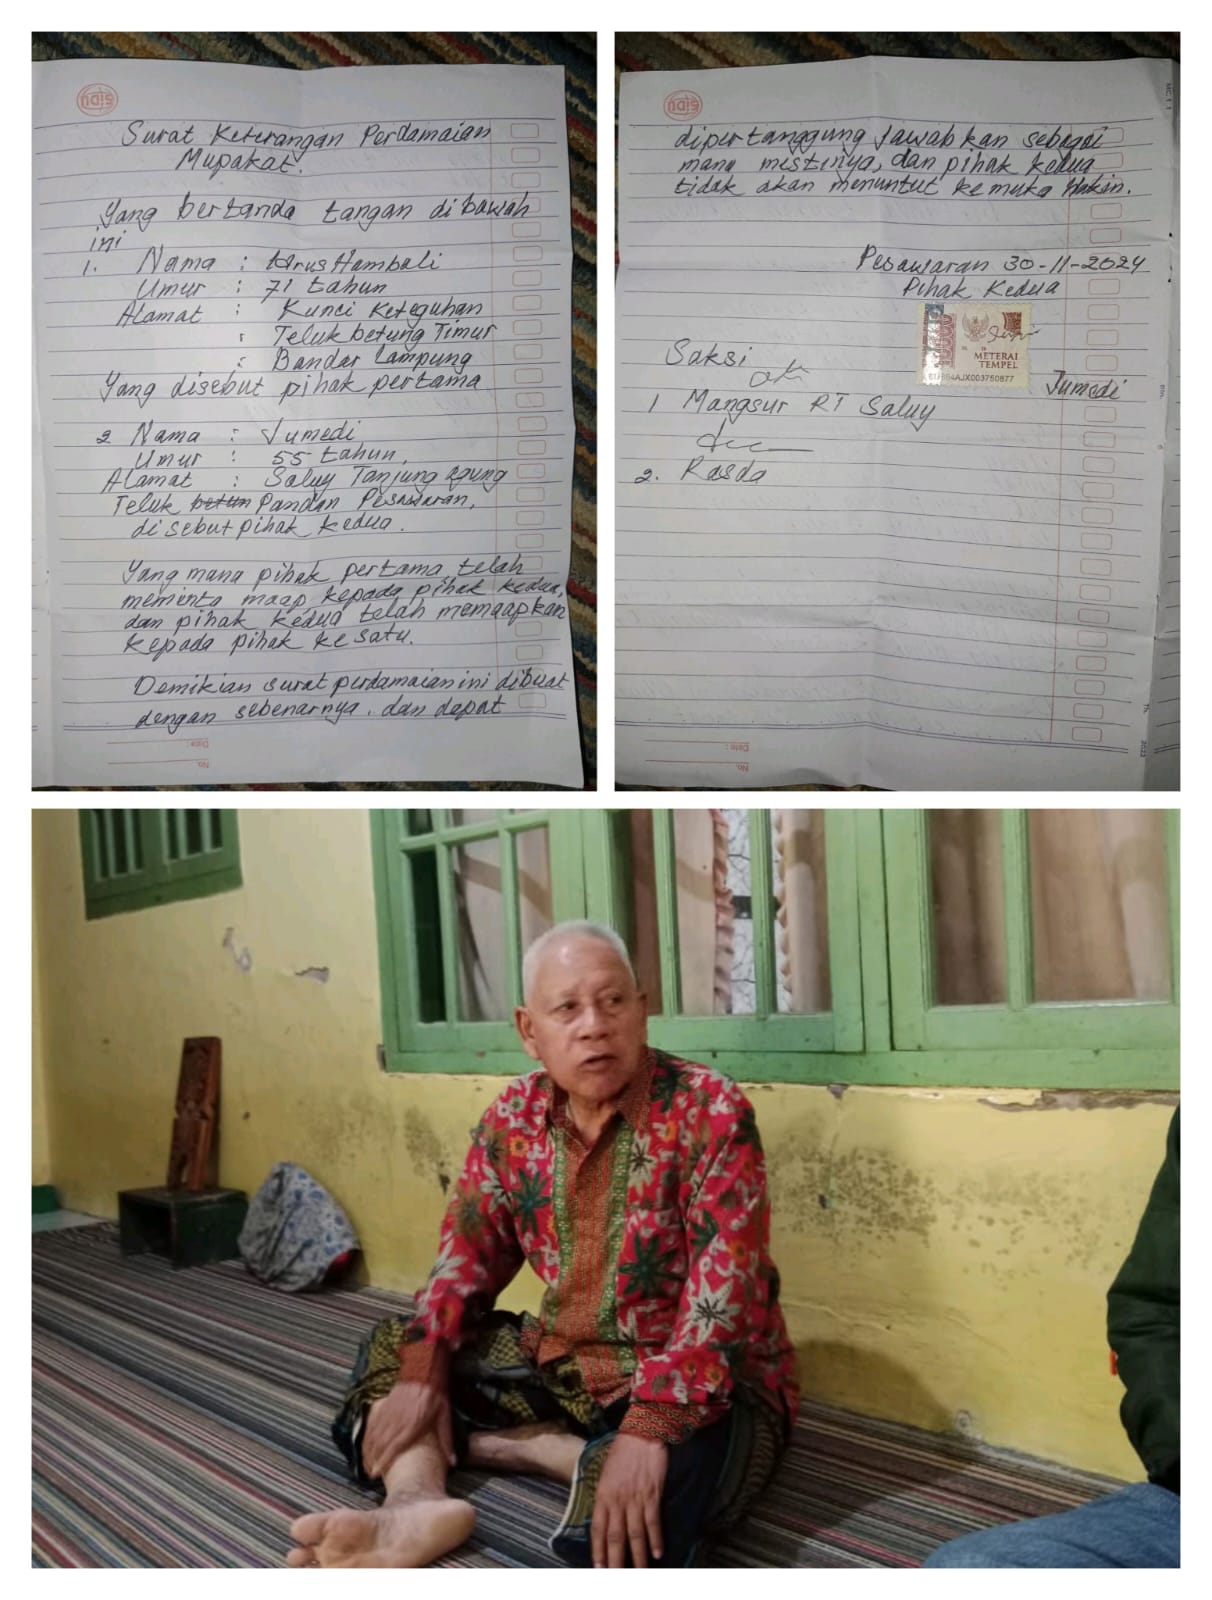 SiDU
Surat Keterangan Perdamaian
Mupakat.
Yang bertanda tangan dibawah
ini
1. Nama : Hambali
Umur : 71 tahun
Alamat : Kunci Keteguhan
: Teluk betung Timur
: Bandar Lampung
Yang disebut pihak pertama
2 Nama : Jumedi
Umur : 55 tahun,
Alamat : Saluy Tanjung agung
Teluk betun Pandan Pesawaran,
disebut pihak kedua.
Yang mana pihak pertama telah
meminta maap kepada pihak kedua,
dan pihak kedua telah memaapkan
kepada pihak kesatu.
Demikian surat perdamaian ini dibuat
dengan sebenarnya. dan dapat
Date :
No.
SiDU
dipertanggung jawabkan sebagai
mana mestinya, dan pihak kedua
tidak akan menuntut kemuka Hakim.
Pesawaran 30-11-2024
Pihak Kedua
METERAI
TEMPEL
AJX003750877
Jumedi
Saksi
1 Mangsur RT Saluy
2. Rasda
Date :
No.
2023